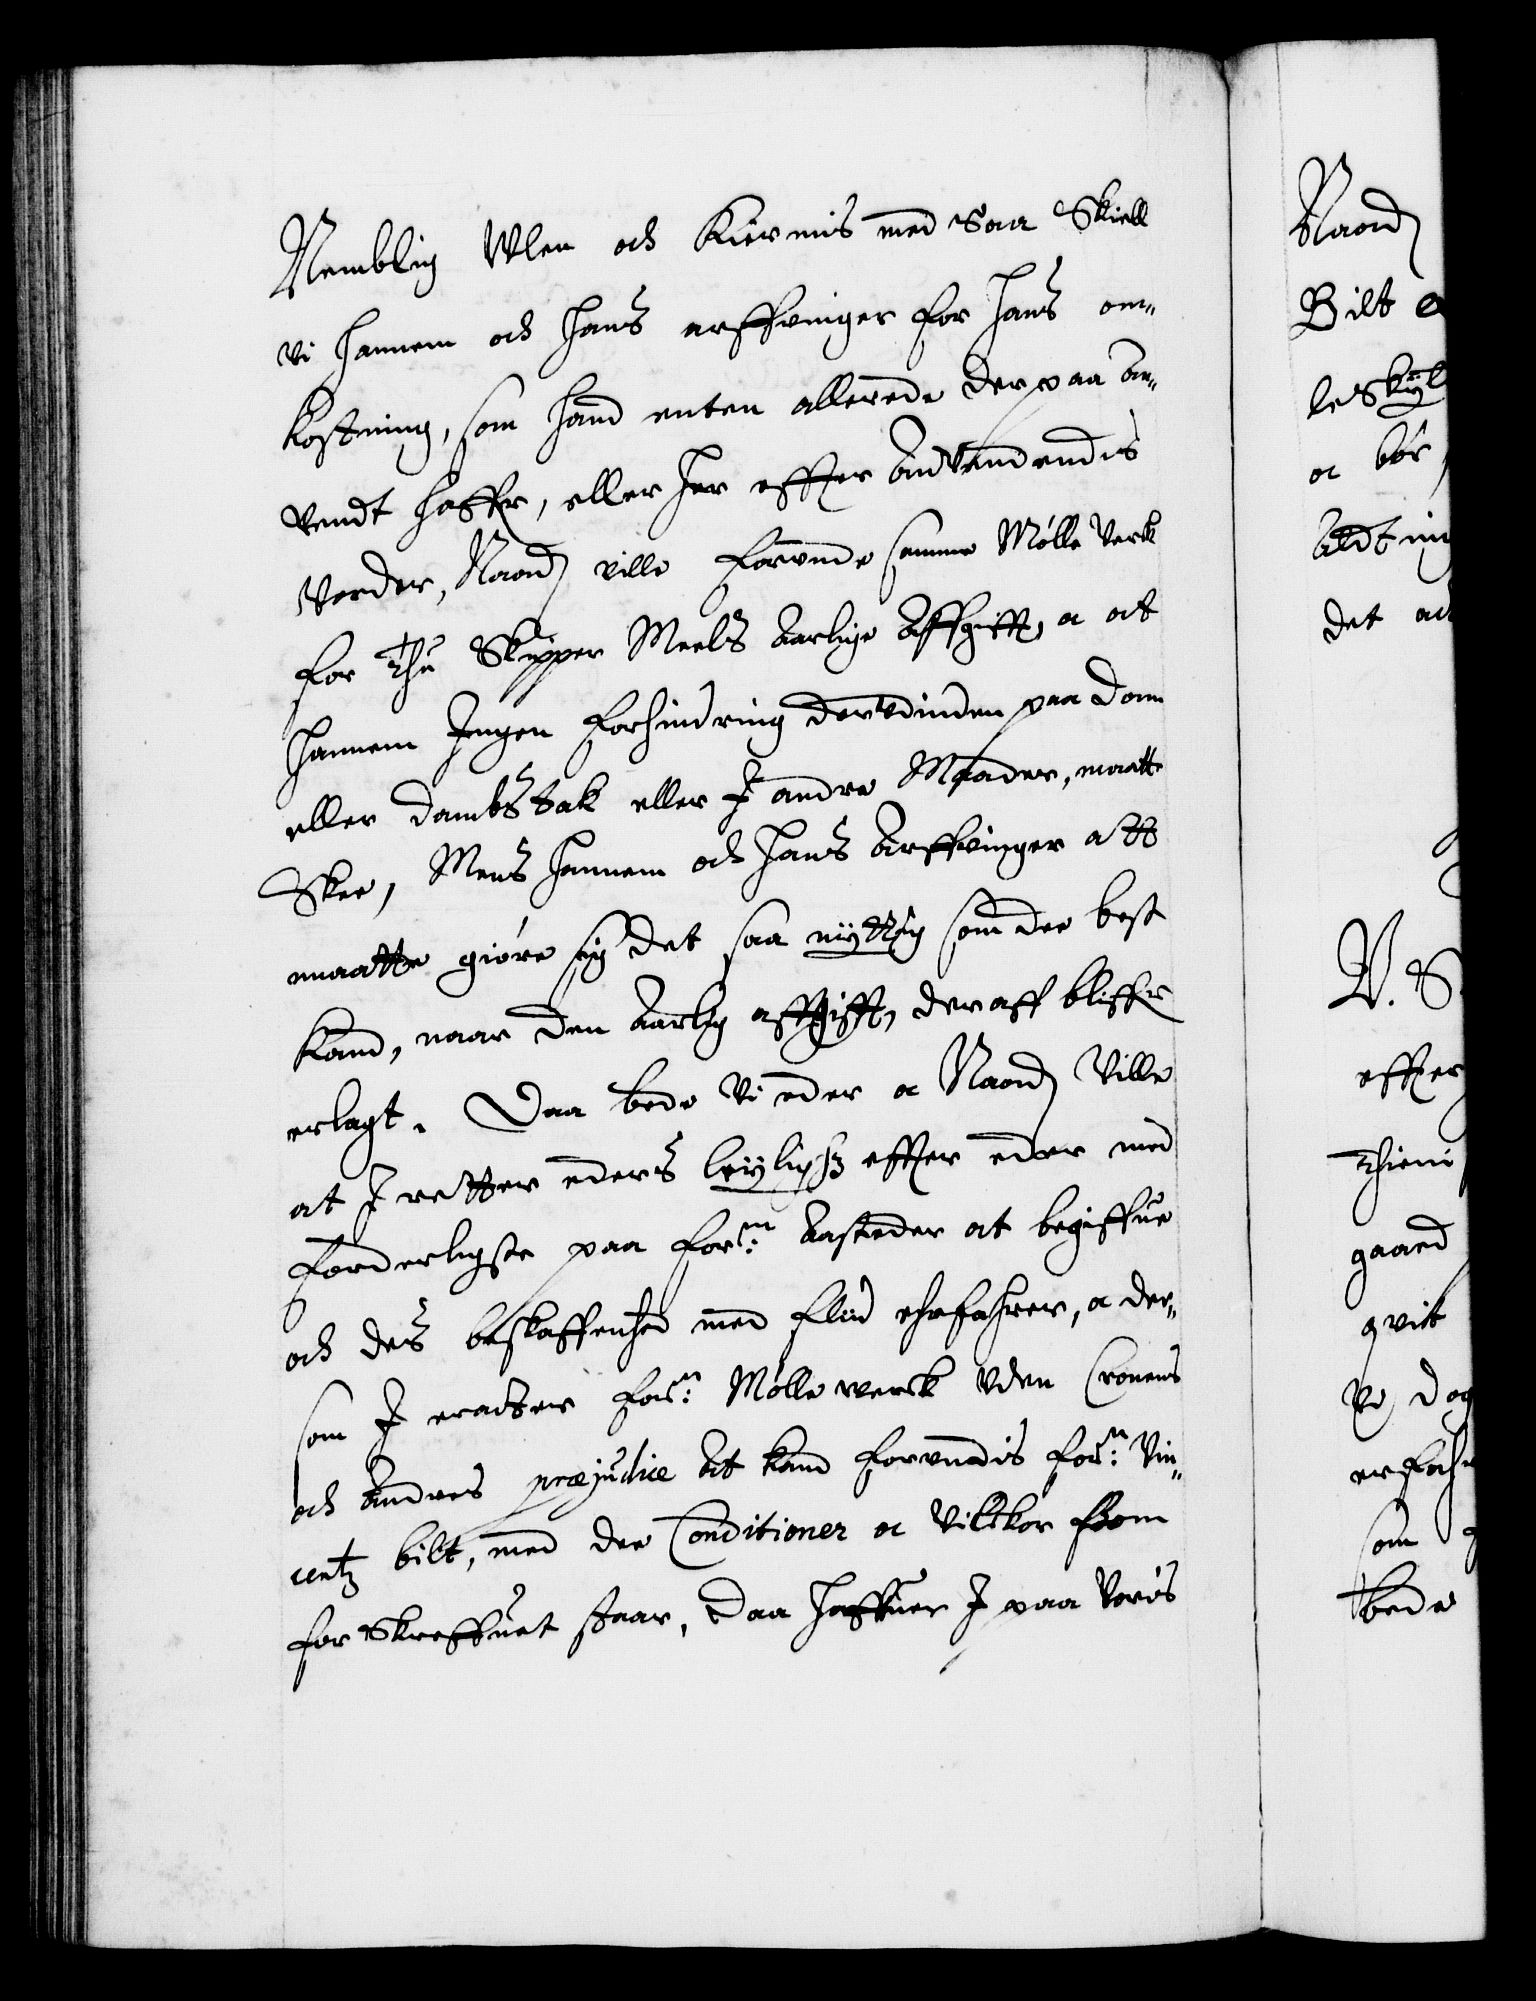 Nemblig Ulen och Kiermis med saa Skiell
vi hannem och hans arffvinger for hans om-
kostning, som hand enten allerede derpaa an-
vendt haffr, eller her effter Andvendendis
Vorder, Naad: ville forunde samme Mølle Verk
for Thu Skipper Meels Aarlige Affgifft, a at
hannem Ingen forhindring derudinden paa dam
eller dambstok eller I andre Maader, maatte
Skee, Mens hannem och hans Arffvinger att
maatte giøre sig det saa nyttig som dee best
kand, naar den Aarlig affgifft, deraff bliffr
erlagt. Daa bede Vi eder a Naad: Ville
at I retter eders leyligh: effter eder med
forderligste paa for:ne Aasteder at begiffue
och des beskaffenhed med flid ehrfahrer, a der-
som I eracter for:ne Mølle werck uden Cronens
och Andres præjudice At kand forundis for:ne Vin-
centz bilt, med dee Conditioner a Vilkor som
for skreffuet staar, Daa haffuer I paa Voris
Naad:
Bilt
a bør
det
V. S.
effter
gaard
qvit
Vi
som
bede